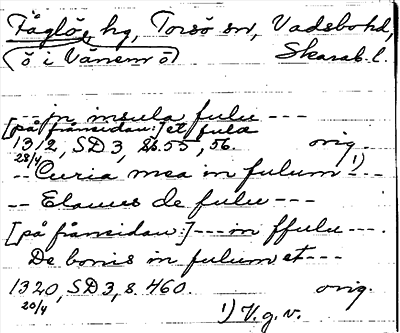 Fåglö, hg, Torsö sn, Vadsbo hd,
(ö i Vänern ö) Skarab. l.
--- in insula fulu ---
[på frånsidan:] et fulœ
1312, SD 3, ss. 55, 56. orig.
28/4
-- Curia mea in fulum 1) ---
-- Elaues de fulu ---
[på frånsidan:] --- in ffulu ---.
De bonis in fulum et ---
1320, SD 3, s. 460. orig.
20/4
1) V. g. v.